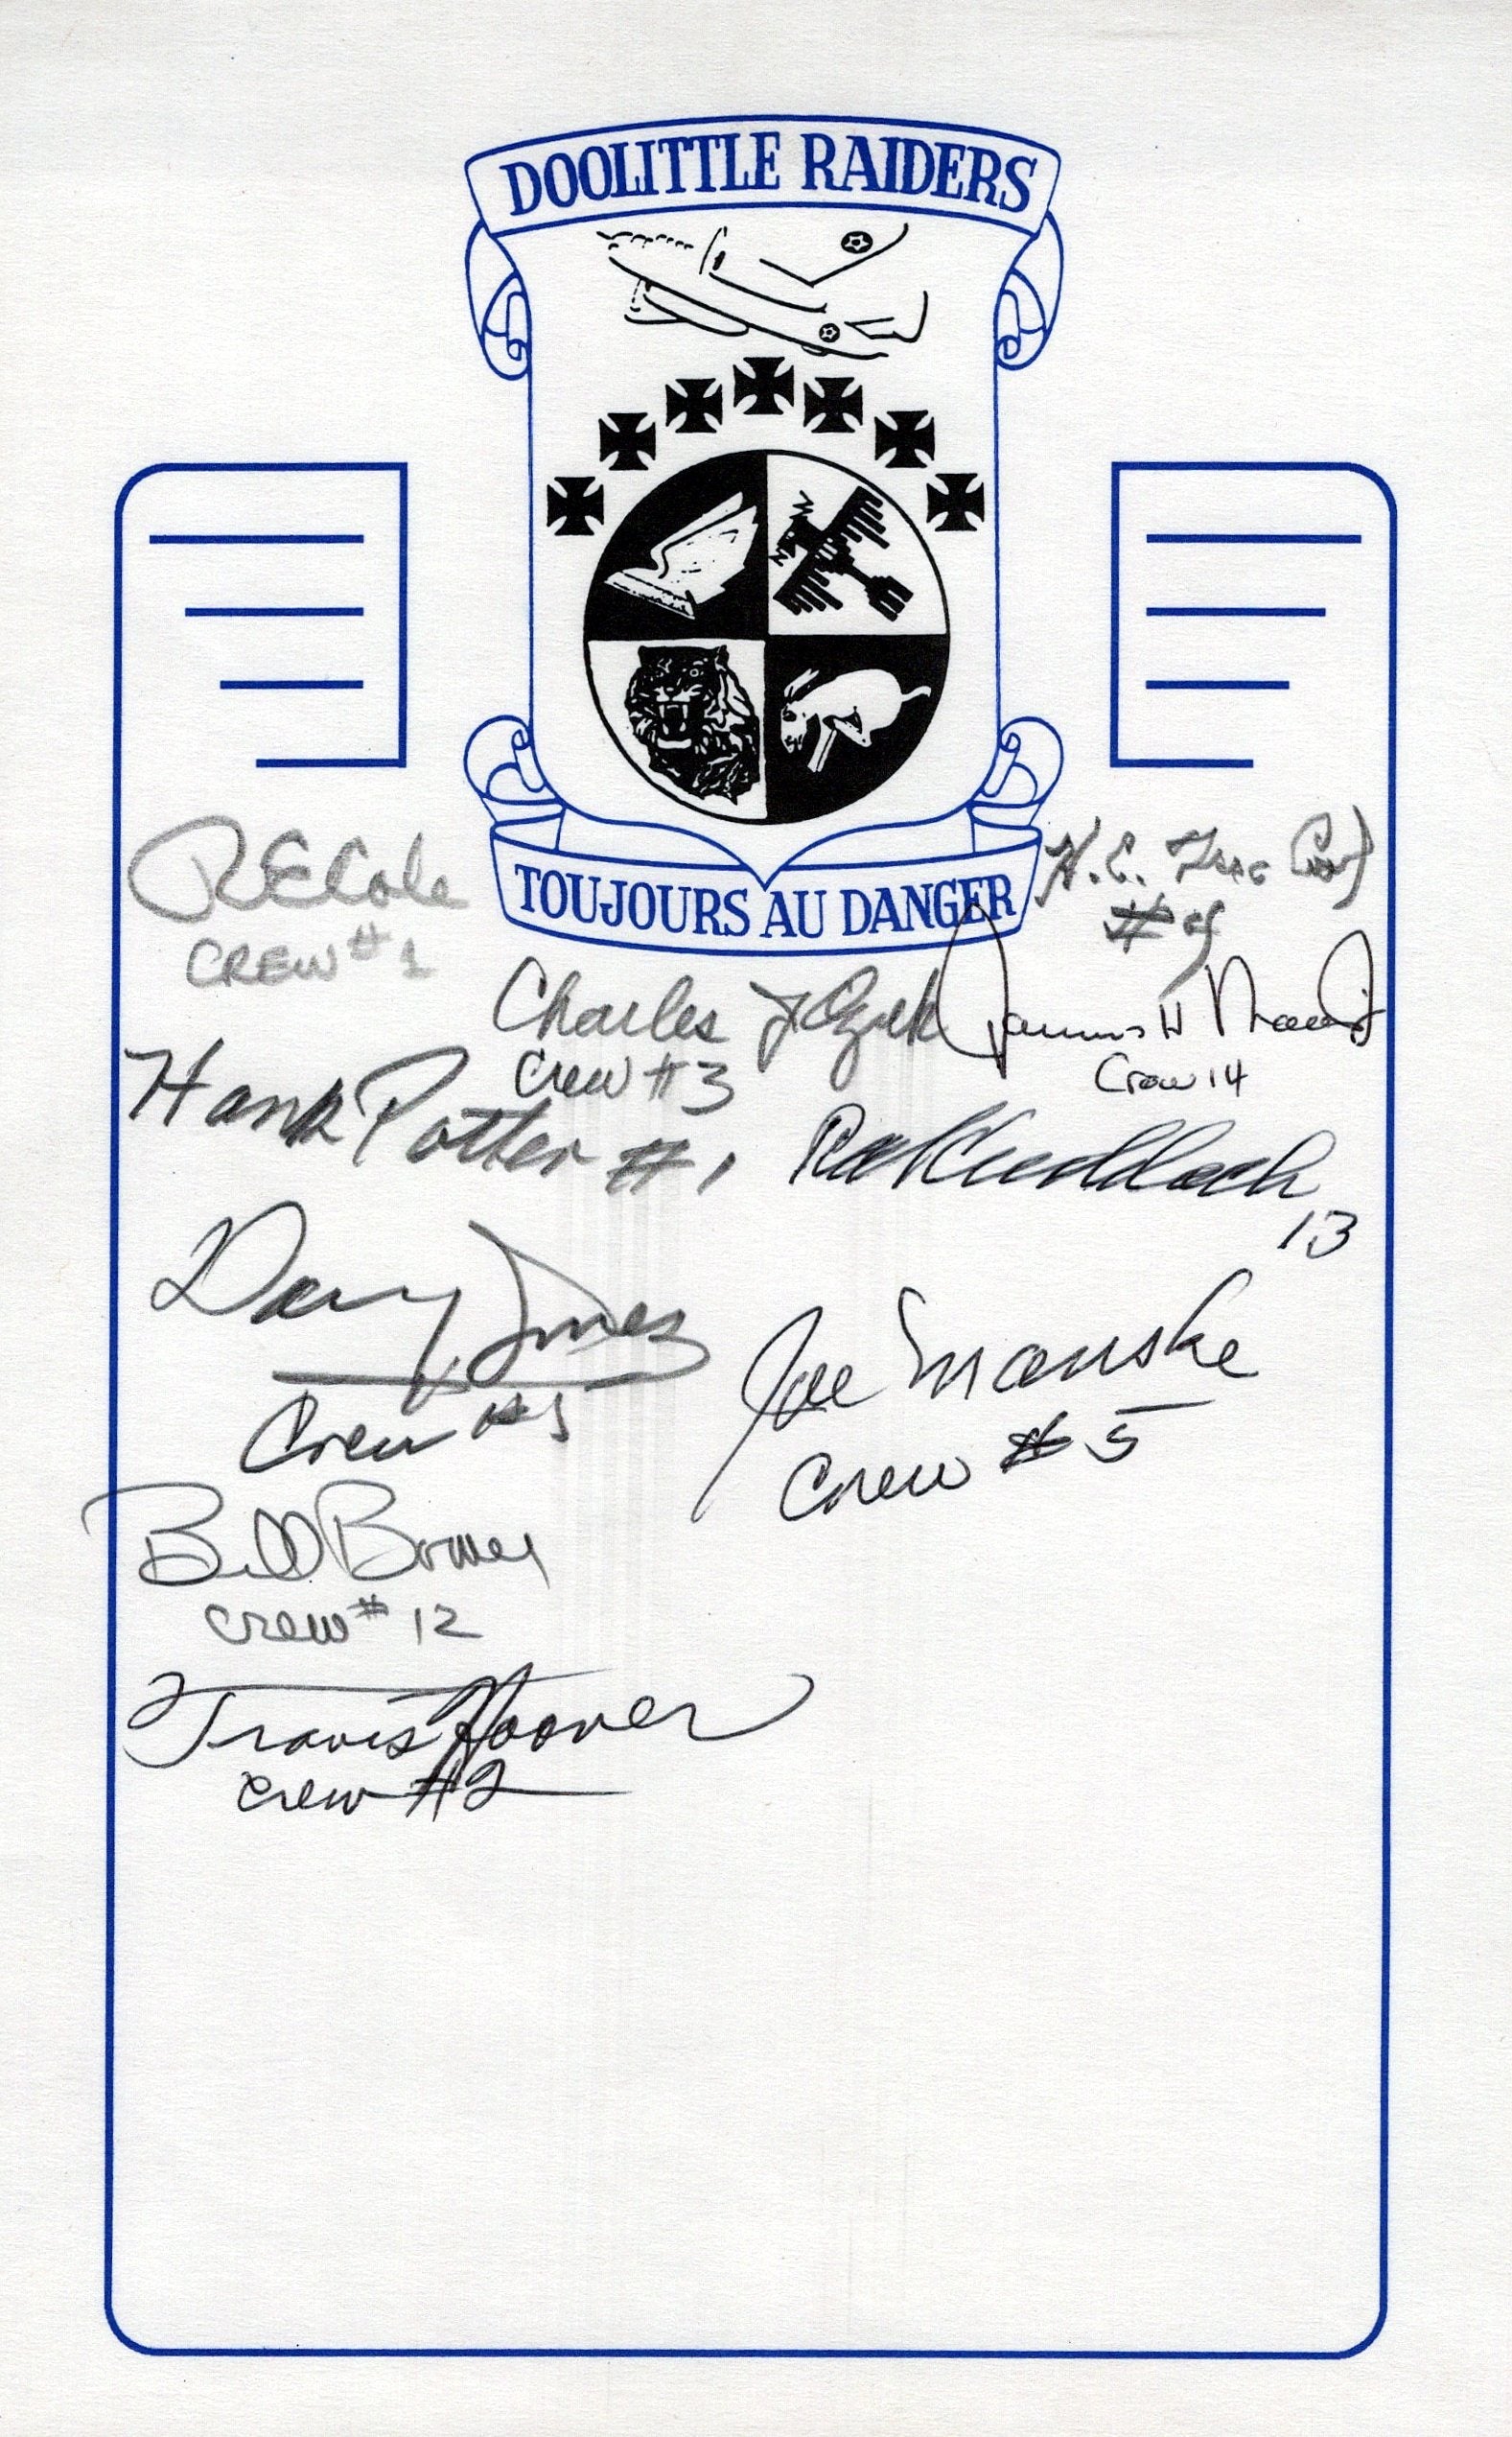 DOOLITTLE RAIDERS
N
W
TOUJOURS AU DANGER
R E Cole
CREW #1
H.C.
#
Charles J Ozuk
Crew #3
James H
Crew 14
Hank Potter #1
13
Davy Jones
Crew #5
Joe Manske
Crew #5
Bill Bower
Crew #12
Travis Hoover
Crew #2